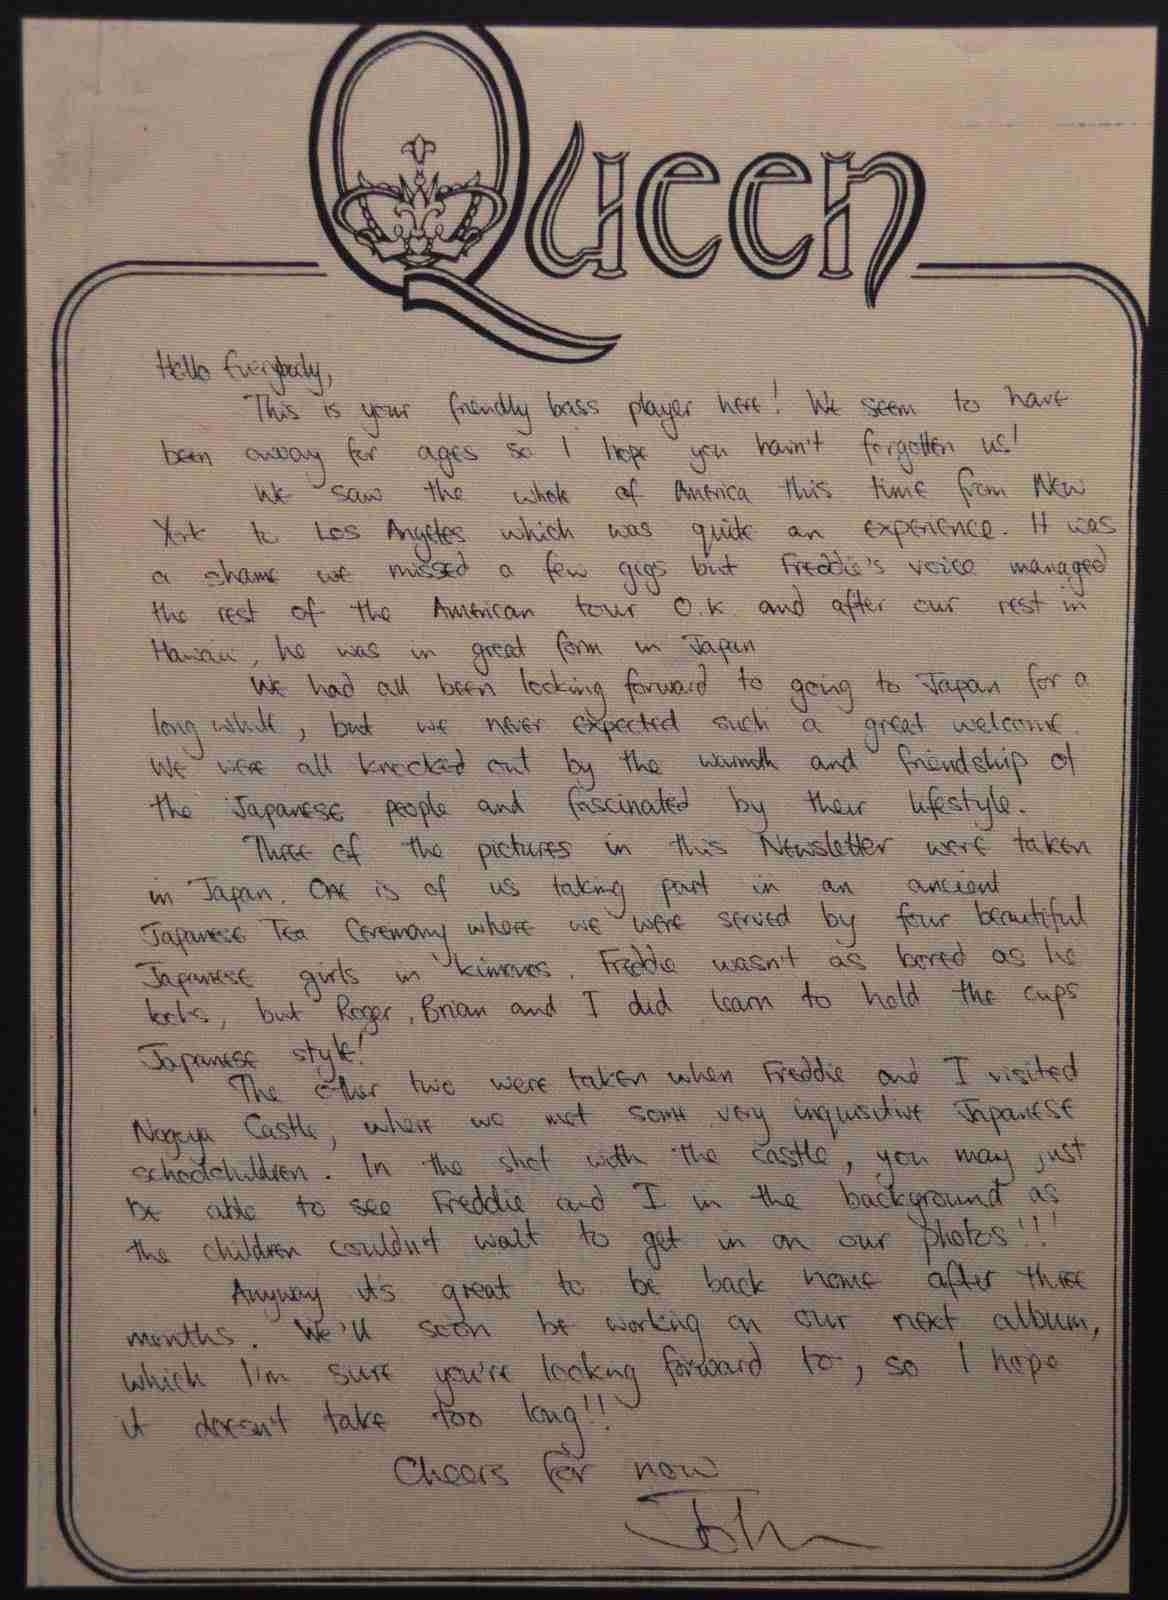 Queen
Hello Everybody,
This is your friendly bass player here! We seem to have
been away for ages so I hope you havn't forgotten us!
We saw the whole of America this time from New
York to Los Angeles which was quite an experience. It was
a shame we missed a few gigs but Freddie's voice managed
the rest of the American tour O.K. and after our rest in
Hawaii, he was in great form in Japan
We had all been looking forward to going to Japan for a
long while, but we never expected such a great welcome.
We were all knocked out by the warmth and friendship of
the Japanese people and fascinated by their lifestyle.
Three of the pictures in this Newsletter were taken
in Japan. One is of us taking part in an ancient
Japanese Tea Ceremony where we were served by four beautiful
Japanese girls in kimonos. Freddie wasn't as bored as he
looks, but Roger, Brian and I did learn to hold the cups
Japanese style!
The other two were taken when Freddie and I visited
Nagoya Castle, where we met some very inquisitive Japanese
schoolchildren. In the shot with the castle, you may just
be able to see Freddie and I in the background as
the children couldn't wait to get in on our photos!!!
Anyway it's great to be back home after three
months. We'll soon be working on our next album,
which I'm sure you're looking forward to, so I hope
it doesn't take too long!!
Cheers for now
John